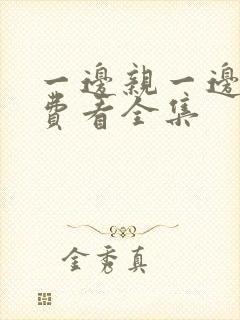 一邊親一邊
費看全集
金秀真